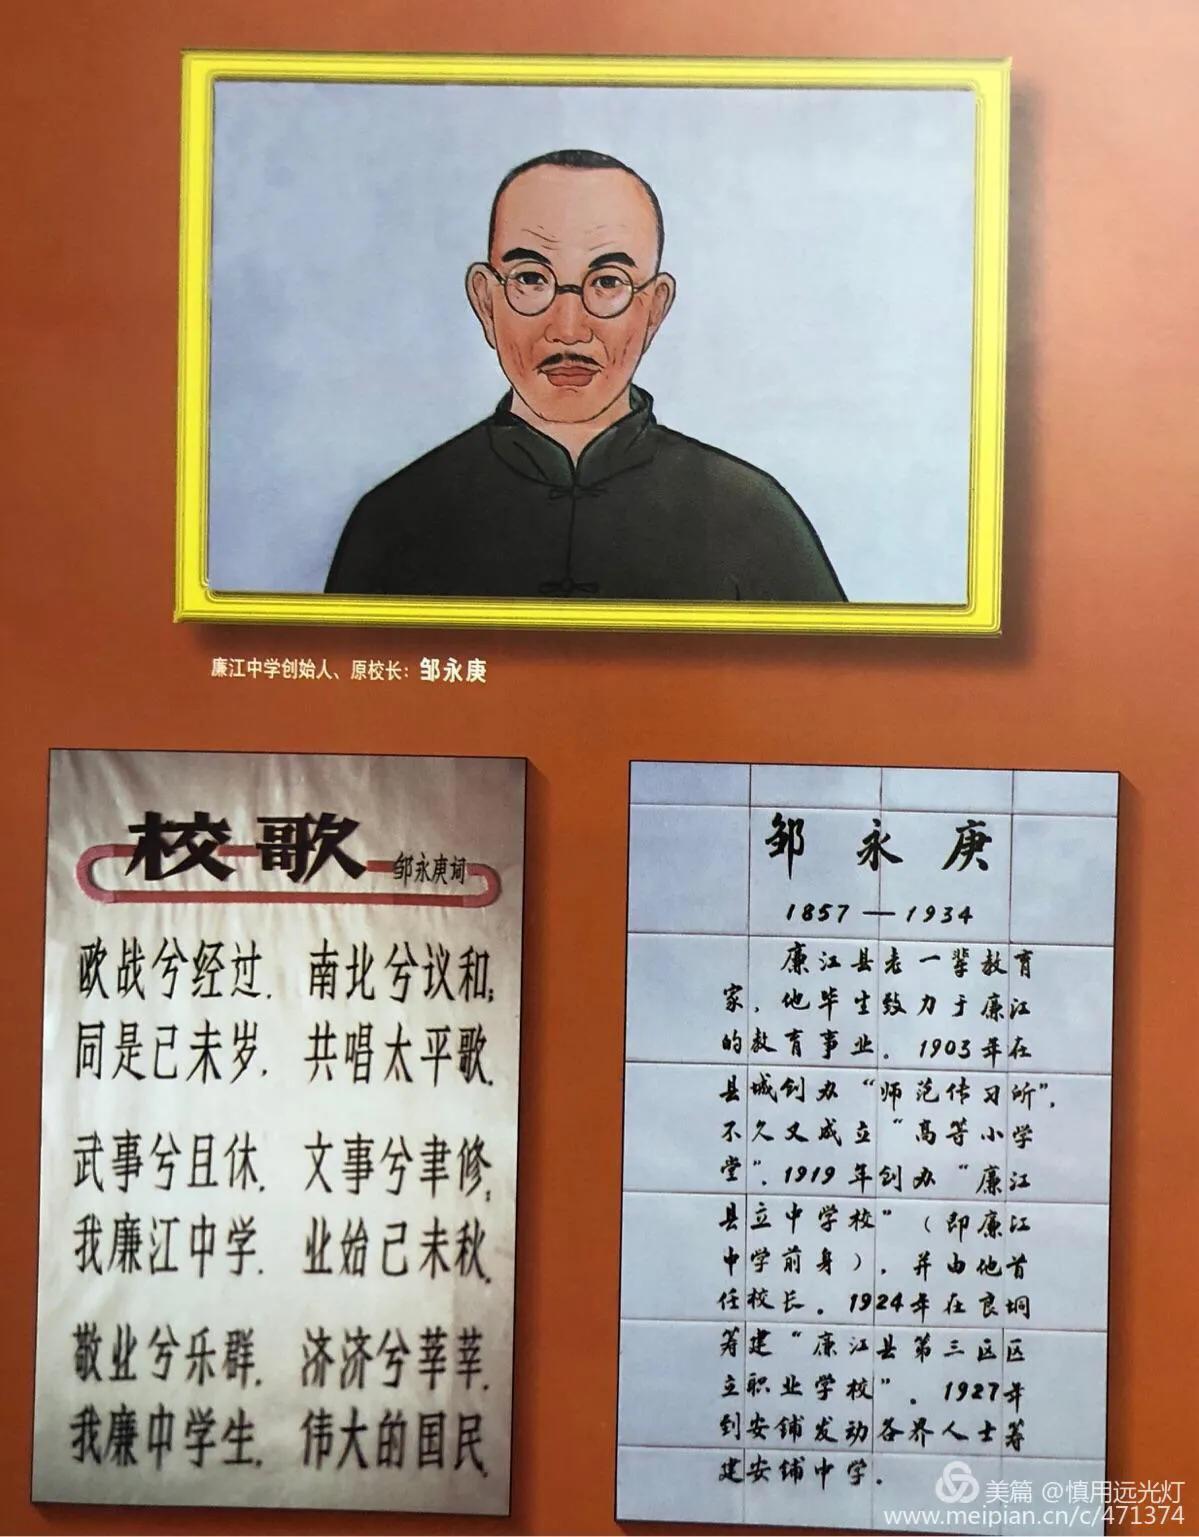 廉江中学创始人、原校长：邹永庚
校歌
邹永庚词
欧战兮经过，南北兮议和；
同是己未岁，共唱太平歌。
武事兮且休，文事兮聿修；
我廉江中学，业始己未秋。
敬业兮乐群，济济兮莘莘，
我廉中学生，伟大的国民。
邹永庚
1857—1934
廉江县老一辈教育
家，他毕生致力于廉江
的教育事业。1903年在
县城创办“师范传习所”，
不久又成立“高等小学
堂”。1919年创办“廉江
县立中学校”（即廉江
中学前身），并由他首
任校长。1924年在良垌
筹建“廉江县第三区区
立职业学校”。1927年
到安铺发动各界人士筹
建安铺中学。
美篇 @慎用远光灯
www.meipian.cn/c/471374